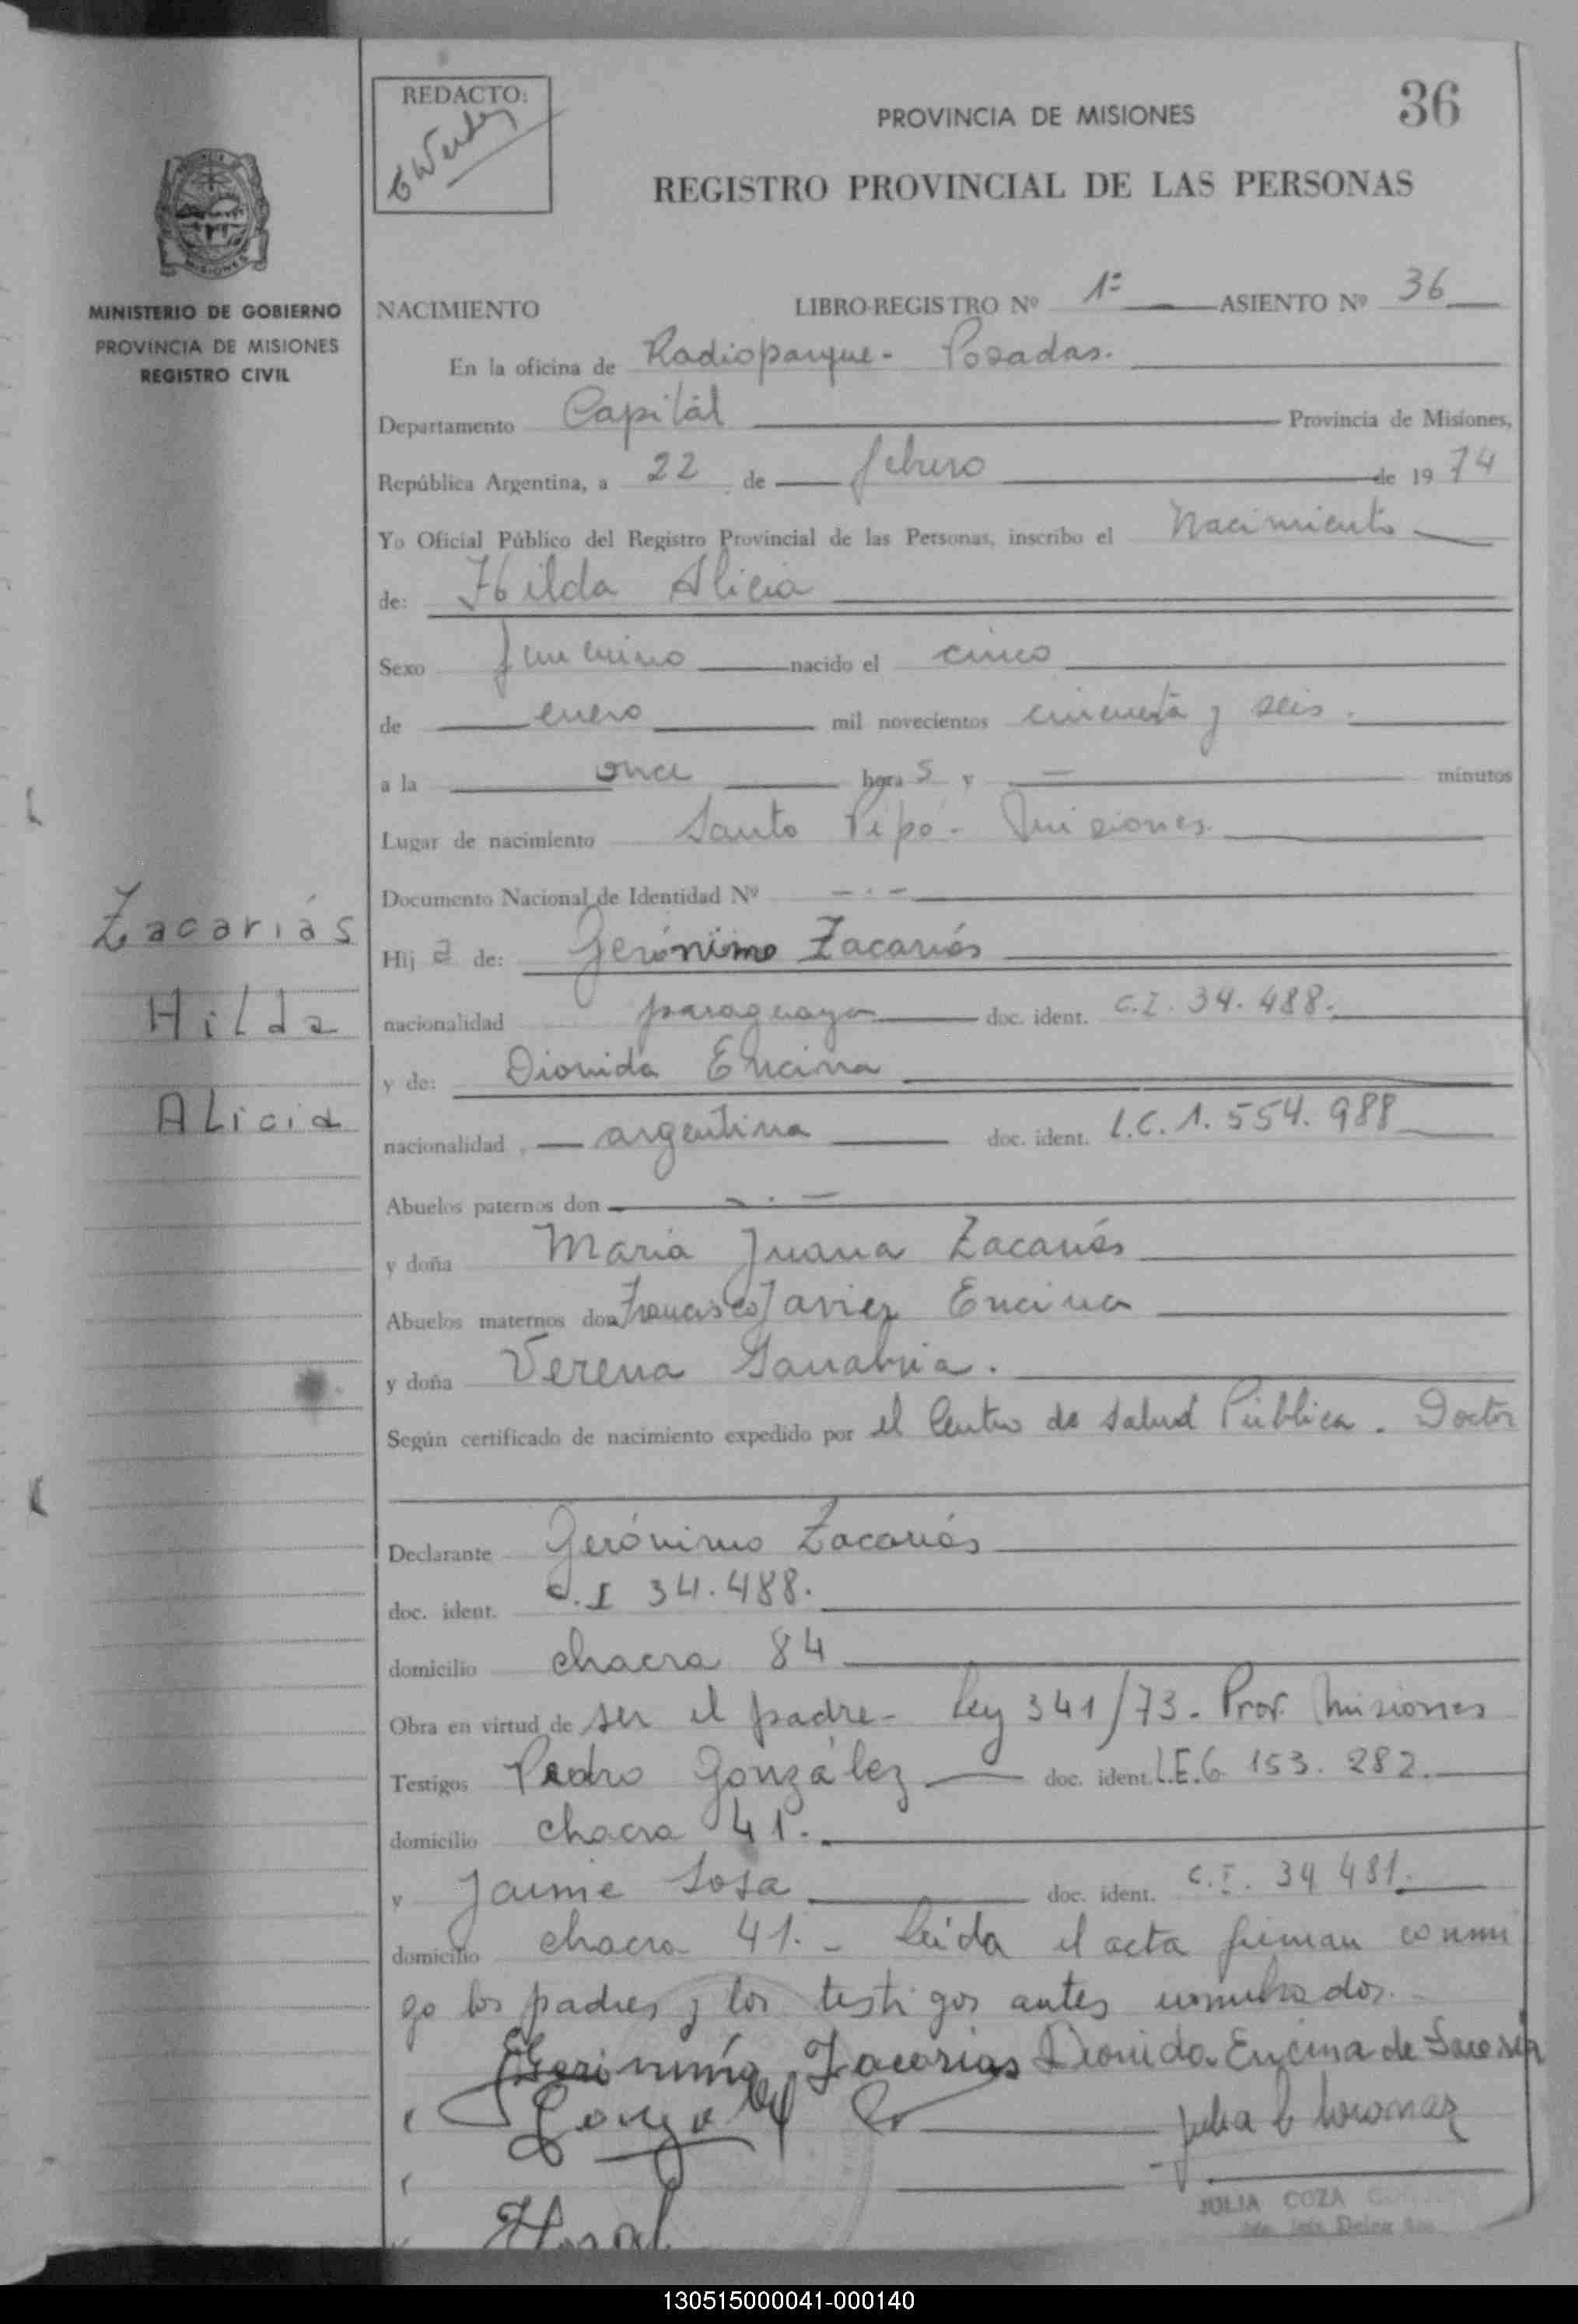 REDACTO:
PROVINCIA DE MISIONES
36
REGISTRO PROVINCIAL DE LAS PERSONAS
MISIONES
MINISTERIO DE GOBIERNO
PROVINCIA DE MISIONES
REGISTRO CIVIL
NACIMIENTO LIBRO-REGISTRO Nº 1º ASIENTO Nº 36
En la oficina de Radioparque - Posadas.
Departamento Capital Provincia de Misiones,
República Argentina, a 22 de febrero de 19 74
Yo Oficial Público del Registro Provincial de las Personas, inscribo el Nacimiento
de: Hilda Alicia
Sexo femenino nacido el cinco
de enero mil novecientos cincuenta y seis.
a la once hora s y — minutos
Lugar de nacimiento Santo Pipó - Misiones.
Documento Nacional de Identidad Nº - . -
Zacariás
Hilda
Alicia
Hij a de: Gerónimo Zacariás
nacionalidad paraguaya doc. ident. C.I. 34.488.
y de: Dionida Encina
nacionalidad argentina doc. ident. L.C. 1.554.988
Abuelos paternos don - . -
y doña Maria Juana Zacariás
Abuelos maternos don Francisco Javier Encina
y doña Verena Sanabria.
Según certificado de nacimiento expedido por el Centro de Salud Pública. Doctor
Declarante Gerónimo Zacariás
doc. ident. C.I 34.488.
domicilio chacra 84
Obra en virtud de ser el padre - Ley 341/73 - Prov. Misiones
Testigos Pedro González doc. ident. L.E. 6.153.282.
domicilio chacra 41.
y Jaime Sosa doc. ident. C.I. 34 481.
domicilio chacra 41. - Leída el acta firman conmi
go los padres y los testigos antes nombrados.
Gerinimo Zacarias Dionida Encina de Sacaria
Gonzalez
JULIA COZA
130515000041-000140